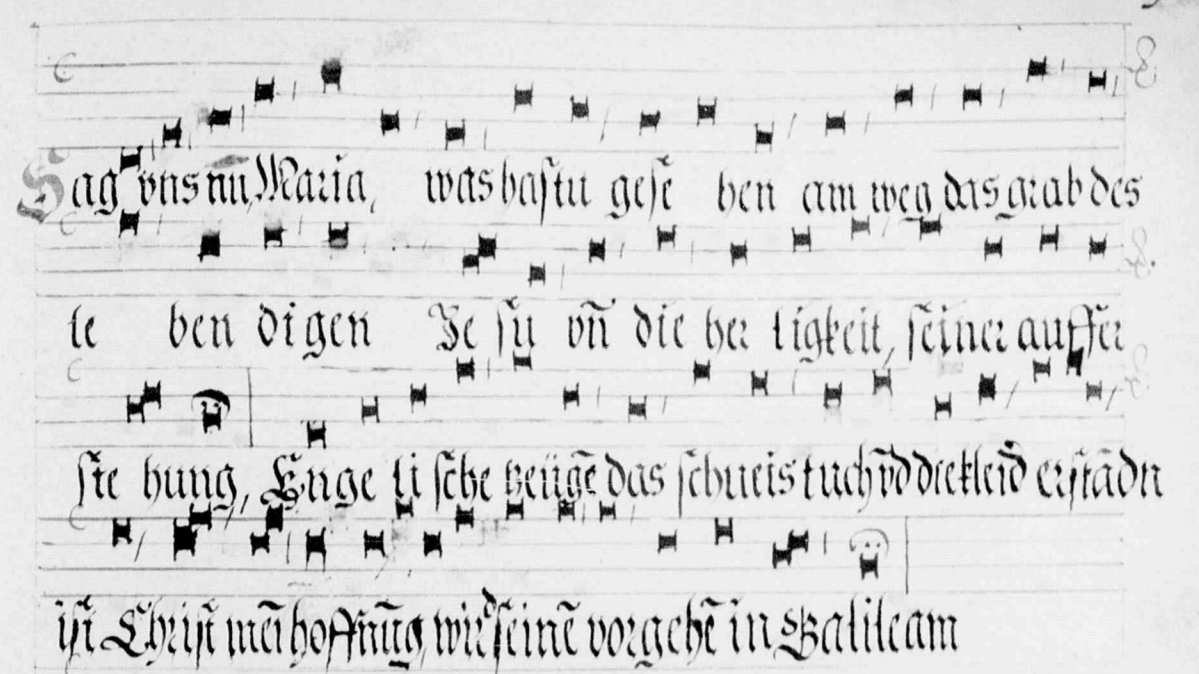 Sag vns nū, Maria, was hastu gese hen am weg das grab des
le ben digen Je su vñ die her ligkeit, seiner auffer
ste hung, Enge li sche zeügē das schueis tuch vñ die kleid erstādn
ist Christ mei hoffnūg wird seinē vorgehē in Galileam